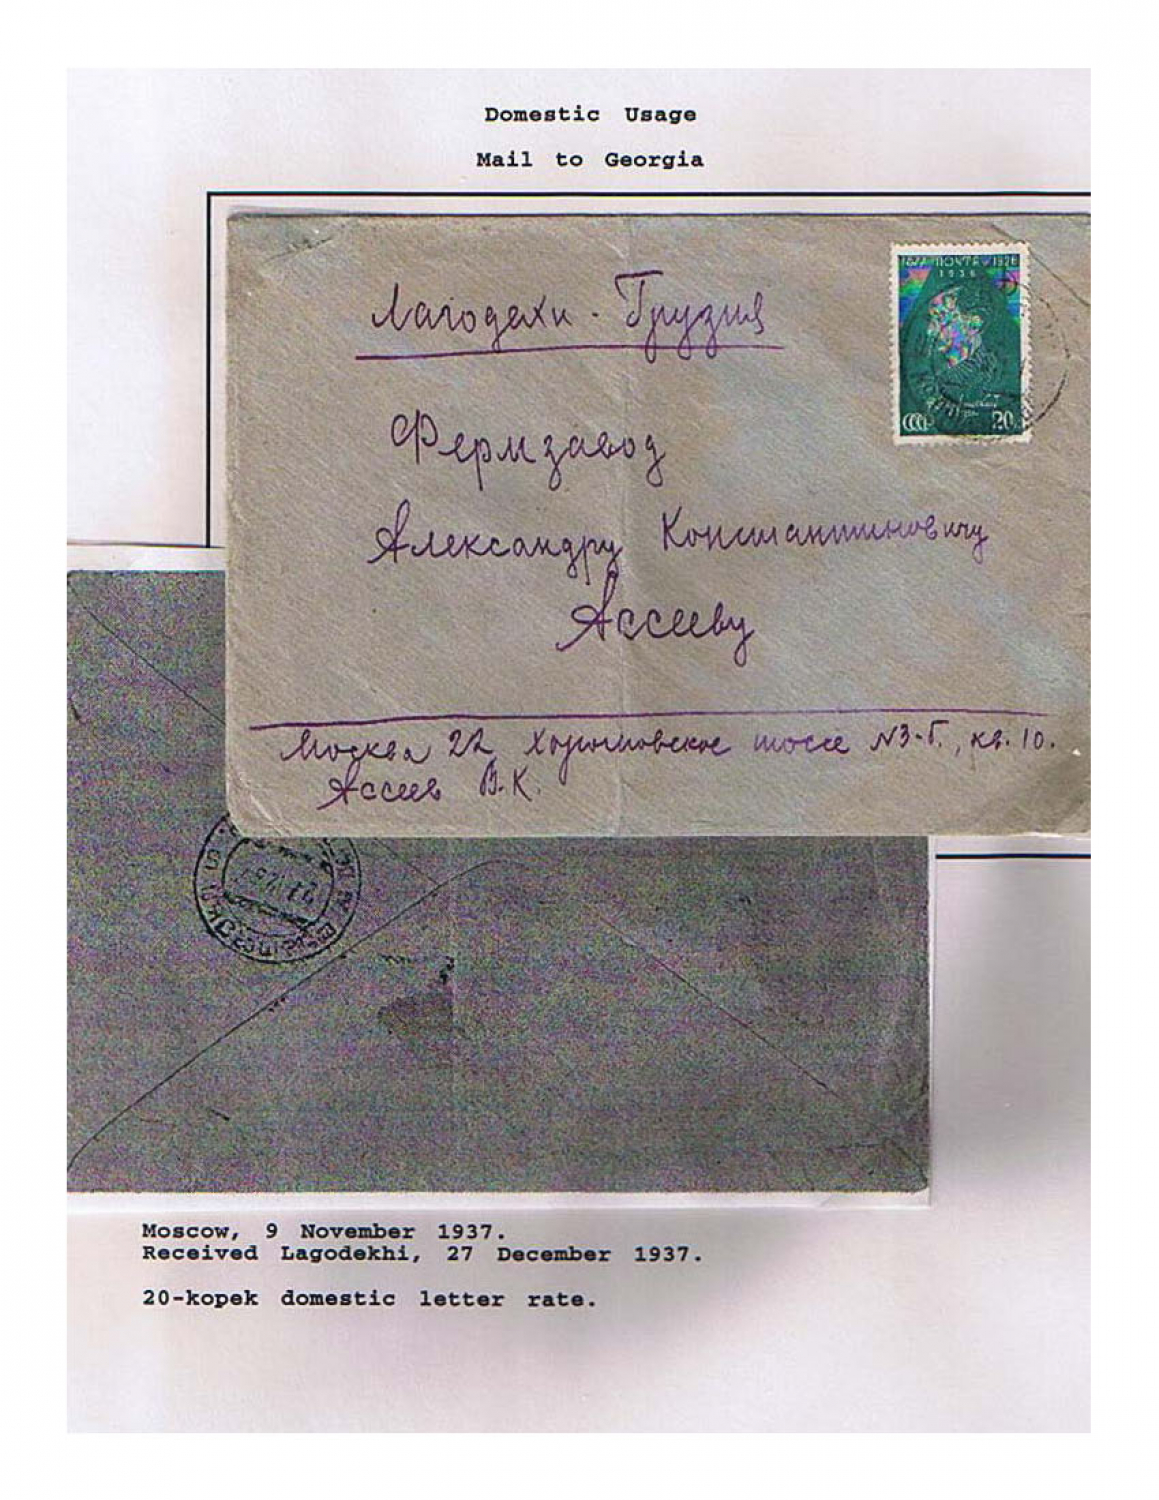 Domestic Usage
Mail to Georgia
1877 ПОЧТА 1926
1936
СССР 20
Лагодехи - Грузия
Фермзавод
Александру Константиновичу
Ассееву
Москва 22 Хорошовское шоссе N3-Г., кв. 10.
Ассеев В.К.
Moscow, 9 November 1937.
Received Lagodekhi, 27 December 1937.
20-kopek domestic letter rate.